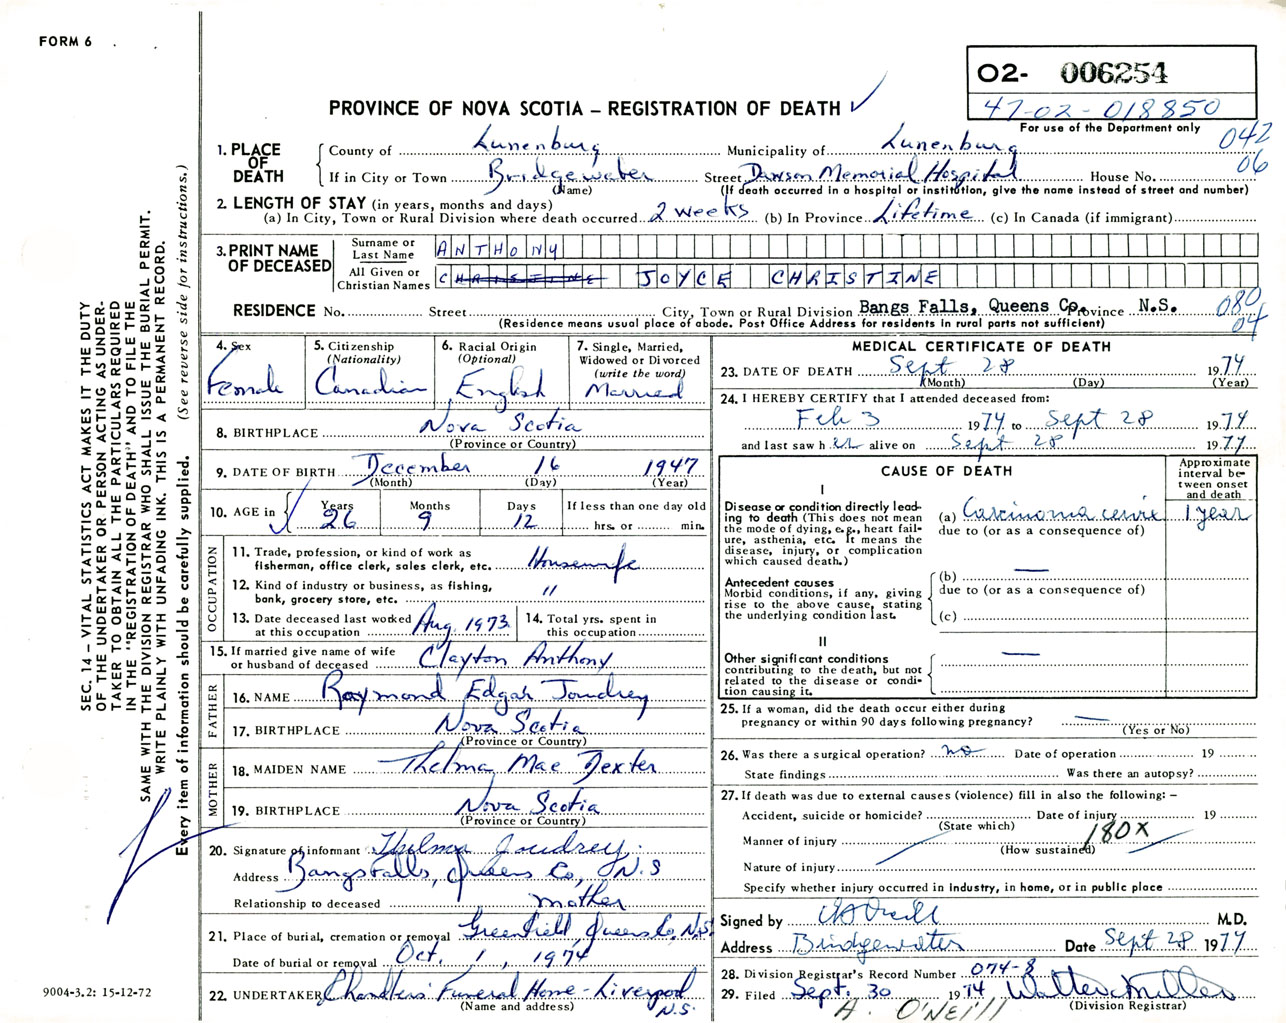 FORM 6
O2- 006254
47-02-018850
For use of the Department only
PROVINCE OF NOVA SCOTIA – REGISTRATION OF DEATH ✓
042
06
1. PLACE OF DEATH
County of Lunenburg Municipality of Lunenburg
If in City or Town Bridgewater Street Dawson Memorial Hospital House No.
(Name) (If death occurred in a hospital or institution, give the name instead of street and number)
2. LENGTH OF STAY (in years, months and days)
(a) In City, Town or Rural Division where death occurred 2 weeks (b) In Province Lifetime (c) In Canada (if immigrant)
3. PRINT NAME OF DECEASED
Surname or Last Name ANTHONY
All Given or Christian Names CHRISTINE JOYCE CHRISTINE
RESIDENCE No. Street City, Town or Rural Division Bangs Falls, Queens Co. Province N.S.
(Residence means usual place of abode. Post Office Address for residents in rural parts not sufficient)
080
04
4. Sex
Female
5. Citizenship
(Nationality)
Canadian
6. Racial Origin
(Optional)
English
7. Single, Married,
Widowed or Divorced
(write the word)
Married
8. BIRTHPLACE Nova Scotia
(Province or Country)
9. DATE OF BIRTH December 16 1947
(Month) (Day) (Year)
10. AGE in Years Months Days If less than one day old
26 9 12 hrs. or min.
OCCUPATION
11. Trade, profession, or kind of work as
fisherman, office clerk, sales clerk, etc. Housewife
12. Kind of industry or business, as fishing,
bank, grocery store, etc. "
13. Date deceased last worked
at this occupation Aug. 1973
14. Total yrs. spent in
this occupation
15. If married give name of wife
or husband of deceased Clayton Anthony
FATHER
16. NAME Raymond Edgar Joudrey
17. BIRTHPLACE Nova Scotia
(Province or Country)
MOTHER
18. MAIDEN NAME Thelma Mae Dexter
19. BIRTHPLACE Nova Scotia
(Province or Country)
20. Signature of informant Thelma Joudrey.
Address Bangs Falls, Queens Co., N.S
Relationship to deceased mother
21. Place of burial, cremation or removal Greenfield, Queens Co, N.S.
Date of burial or removal Oct. 1, 1974
22. UNDERTAKER Chandlers' Funeral Home - Liverpool
(Name and address) N.S.
MEDICAL CERTIFICATE OF DEATH
23. DATE OF DEATH Sept 28 1974
(Month) (Day) (Year)
24. I HEREBY CERTIFY that I attended deceased from:
Feb 3 1974 to Sept 28 1974
and last saw h er alive on Sept 28 1974
CAUSE OF DEATH
Approximate
interval be-
tween onset
and death
I
Disease or condition directly lead-
ing to death (This does not mean
the mode of dying, e.g., heart fail-
ure, asthenia, etc. It means the
disease, injury, or complication
which caused death.)
(a) Carcinoma cervix 1 year
due to (or as a consequence of)
Antecedent causes
Morbid conditions, if any, giving
rise to the above cause, stating
the underlying condition last.
(b) —
due to (or as a consequence of)
(c)
II
Other significant conditions —
contributing to the death, but not
related to the disease or condi-
tion causing it.
25. If a woman, did the death occur either during
pregnancy or within 90 days following pregnancy? —
(Yes or No)
26. Was there a surgical operation? no Date of operation 19
State findings Was there an autopsy?
27. If death was due to external causes (violence) fill in also the following: –
Accident, suicide or homicide? Date of injury 19
(State which)
Manner of injury 180X
(How sustained)
Nature of injury
Specify whether injury occurred in industry, in home, or in public place
Signed by A O'Neill M.D.
Address Bridgewater Date Sept 28 1974
28. Division Registrar's Record Number 074-8
29. Filed Sept. 30 1974 Walter Miller
(Division Registrar)
A. O'NEILL
SEC. 14 – VITAL STATISTICS ACT MAKES IT THE DUTY
OF THE UNDERTAKER OR PERSON ACTING AS UNDER-
TAKER TO OBTAIN ALL THE PARTICULARS REQUIRED
IN THE "REGISTRATION OF DEATH" AND TO FILE THE
SAME WITH THE DIVISION REGISTRAR WHO SHALL ISSUE THE BURIAL PERMIT.
WRITE PLAINLY WITH UNFADING INK. THIS IS A PERMANENT RECORD.
Every item of information should be carefully supplied. (See reverse side for instructions.)
9004-3.2: 15-12-72